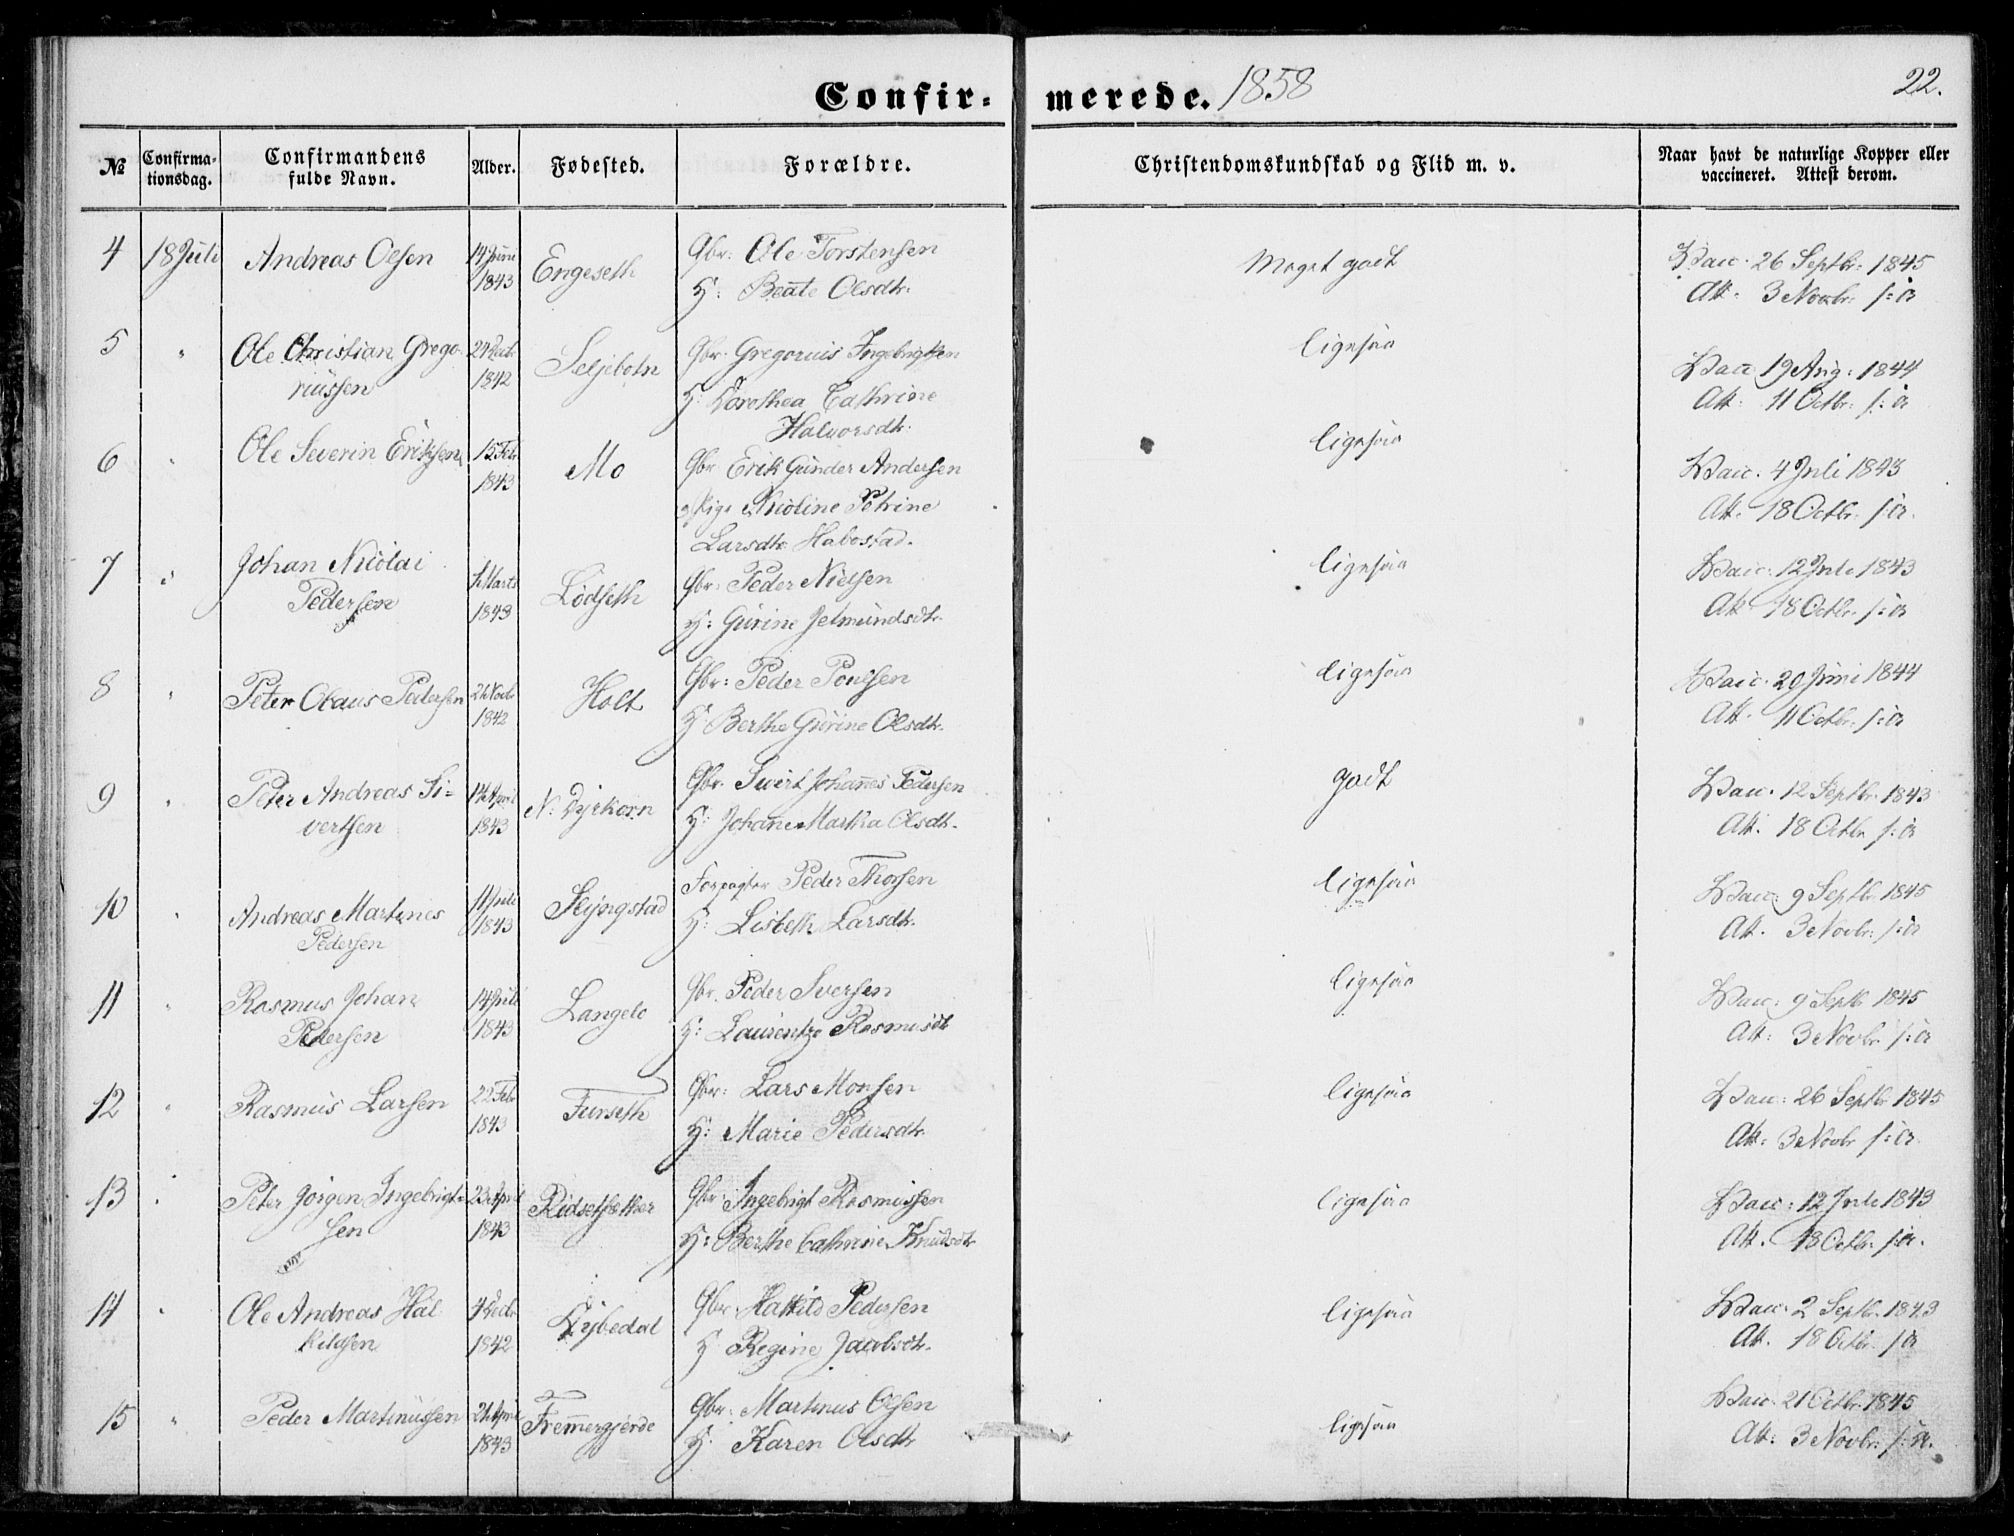 Confirmerede. 1858 22.
No Confirmationsdag. Confirmandens fulde Navn. Alder. Fødested. Forældre. Christendomskundskab og Flid m. v. Naar havt de naturlige Kopper eller vaccineret. Attest derom.
4 18 Juli Andreas Olsen 14 Juni Engeseth Gbr: Ole Torstensen Meget godt Vacc. 26 Septbr: 1845
1843 H: Beate Olsdtr. Att. 3 Novbr: s: A
5 " Ole Christian Grego- 24 Decbr Seljebotn Gbr. Gregorius Ingebrigtsen ligesaa Vacc 19 Aug. 1844
riussen 1842 H: Dorothea Cathrine Att. 11 Octbr: s: A
Halvorsdtr.
6 " Ole Severin Eriksen 15 Feb Mo Gbr Erik Gunder Andersen ligesaa Vacc. 4 Juli 1843
1843 Pige Nicoline Petrine Att. 18 Octbr. s: A.
Larsdtr Habostad.
7 " Johan Nicolai Marts Lödseth Gbr. Peder Nielsen ligesaa Vacc. 12 Juli 1843
Pedersen 1843 H: Gurine Jetmundsdtr. Att 18 Octbr. s: A
8 " Peter Olaus Pedersen Novbr Holt Gbr: Peder Poulsen ligesaa Vacc. 20 Juni 1844
1842 H Berthe Gurine Olsdtr. Att. 11 Octbr. s: A
9 " Peter Andreas Si- April N: Dyrkorn Gbr. Sivert Johannes Pedersen godt Vacc. 12 Septbr. 1843
vertsen 1843 H: Johane Martha Olsdtr. Att. 18 Octbr s: A
10 " Andreas Martinus 11 Juli Forpagter Peder Thorsen ligesaa Vacc: 9 Septbr. 1845
Pedersen 1843 H: Lisbeth Larsdtr. Att. 3 Novbr: s: A
11 " Rasmus Johan 14 Juli Langelo Gbr. Peder Iversen ligesaa Vacc: 9 Septb 1845
Pedersen 1843 H: Laurentze Rasmusdt Att: 3 Novbr s: A
12 " Rasmus Larsen 22 Feb Furseth Gbr: Lars Monsen ligesaa Vacc: 26 Septbr 1845
1843 H: Marie Pedersdtr. Att: 3 Novbr s: A.
13 " Peter Jörgen Ingebrigt- 23 April Rödsetsæther Gbr. Ingebrigt Rasmussen ligesaa Vacc: 12 Juli 1843
sen 1843 H: Berthe Cathrine Knudsdtr Att. 18 Octbr. s: A.
14 " Ole Andreas Hal- 4 Decbr Dybedal Gbr. Halkild Pedersen ligesaa Vacc. 2 Septbr. 1843
kildsen 1842 H Regine Jacobsdtr. Att. 18 Octbr. s: A
15 " Peder Martinussen April Fremmergjerde Gbr. Martinus Olsen ligesaa Vacc. 21 Octbr. 1845
1843 H: Karen Olsdtr Att: 3 Novbr: s: A.